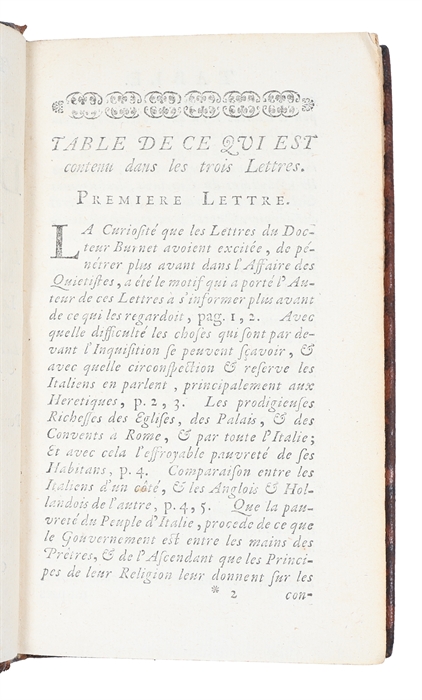 TABLE DE CE QVI EST
contenu dans les trois Lettres.
PREMIERE LETTRE.
LA Curiosité que les Lettres du Doc-
teur Burnet avoient excitée, de pé-
nétrer plus avant dans l'Affaire des
Quietistes, a été le motif qui a porté l'Au-
teur de ces Lettres à s'informer plus avant
de ce qui les regardoit, pag. 1, 2. Avec
quelle difficulté les choses qui sont par de-
vant l'Inquisition se peuvent sçavoir, &
avec quelle circonspection & reserve les
Italiens en parlent, principalement aux
Heretiques, p. 2, 3. Les prodigieuses
Richesses des Eglises, des Palais, & des
Convents a Rome, & par toute l'Italie;
Et avec cela l'effroyable pauvreté de ses
Habitans, p. 4. Comparaison entre les
Italiens d'un côté, & les Anglois & Hol-
landois de l'autre, p. 4, 5. Que la pau-
vreté du Peuple d'Italie, procede de ce que
le Gouvernement est entre les mains des
Prêtres, & de l'Ascendant que les Princi-
pes de leur Religion leur donnent sur les
* 2 con-